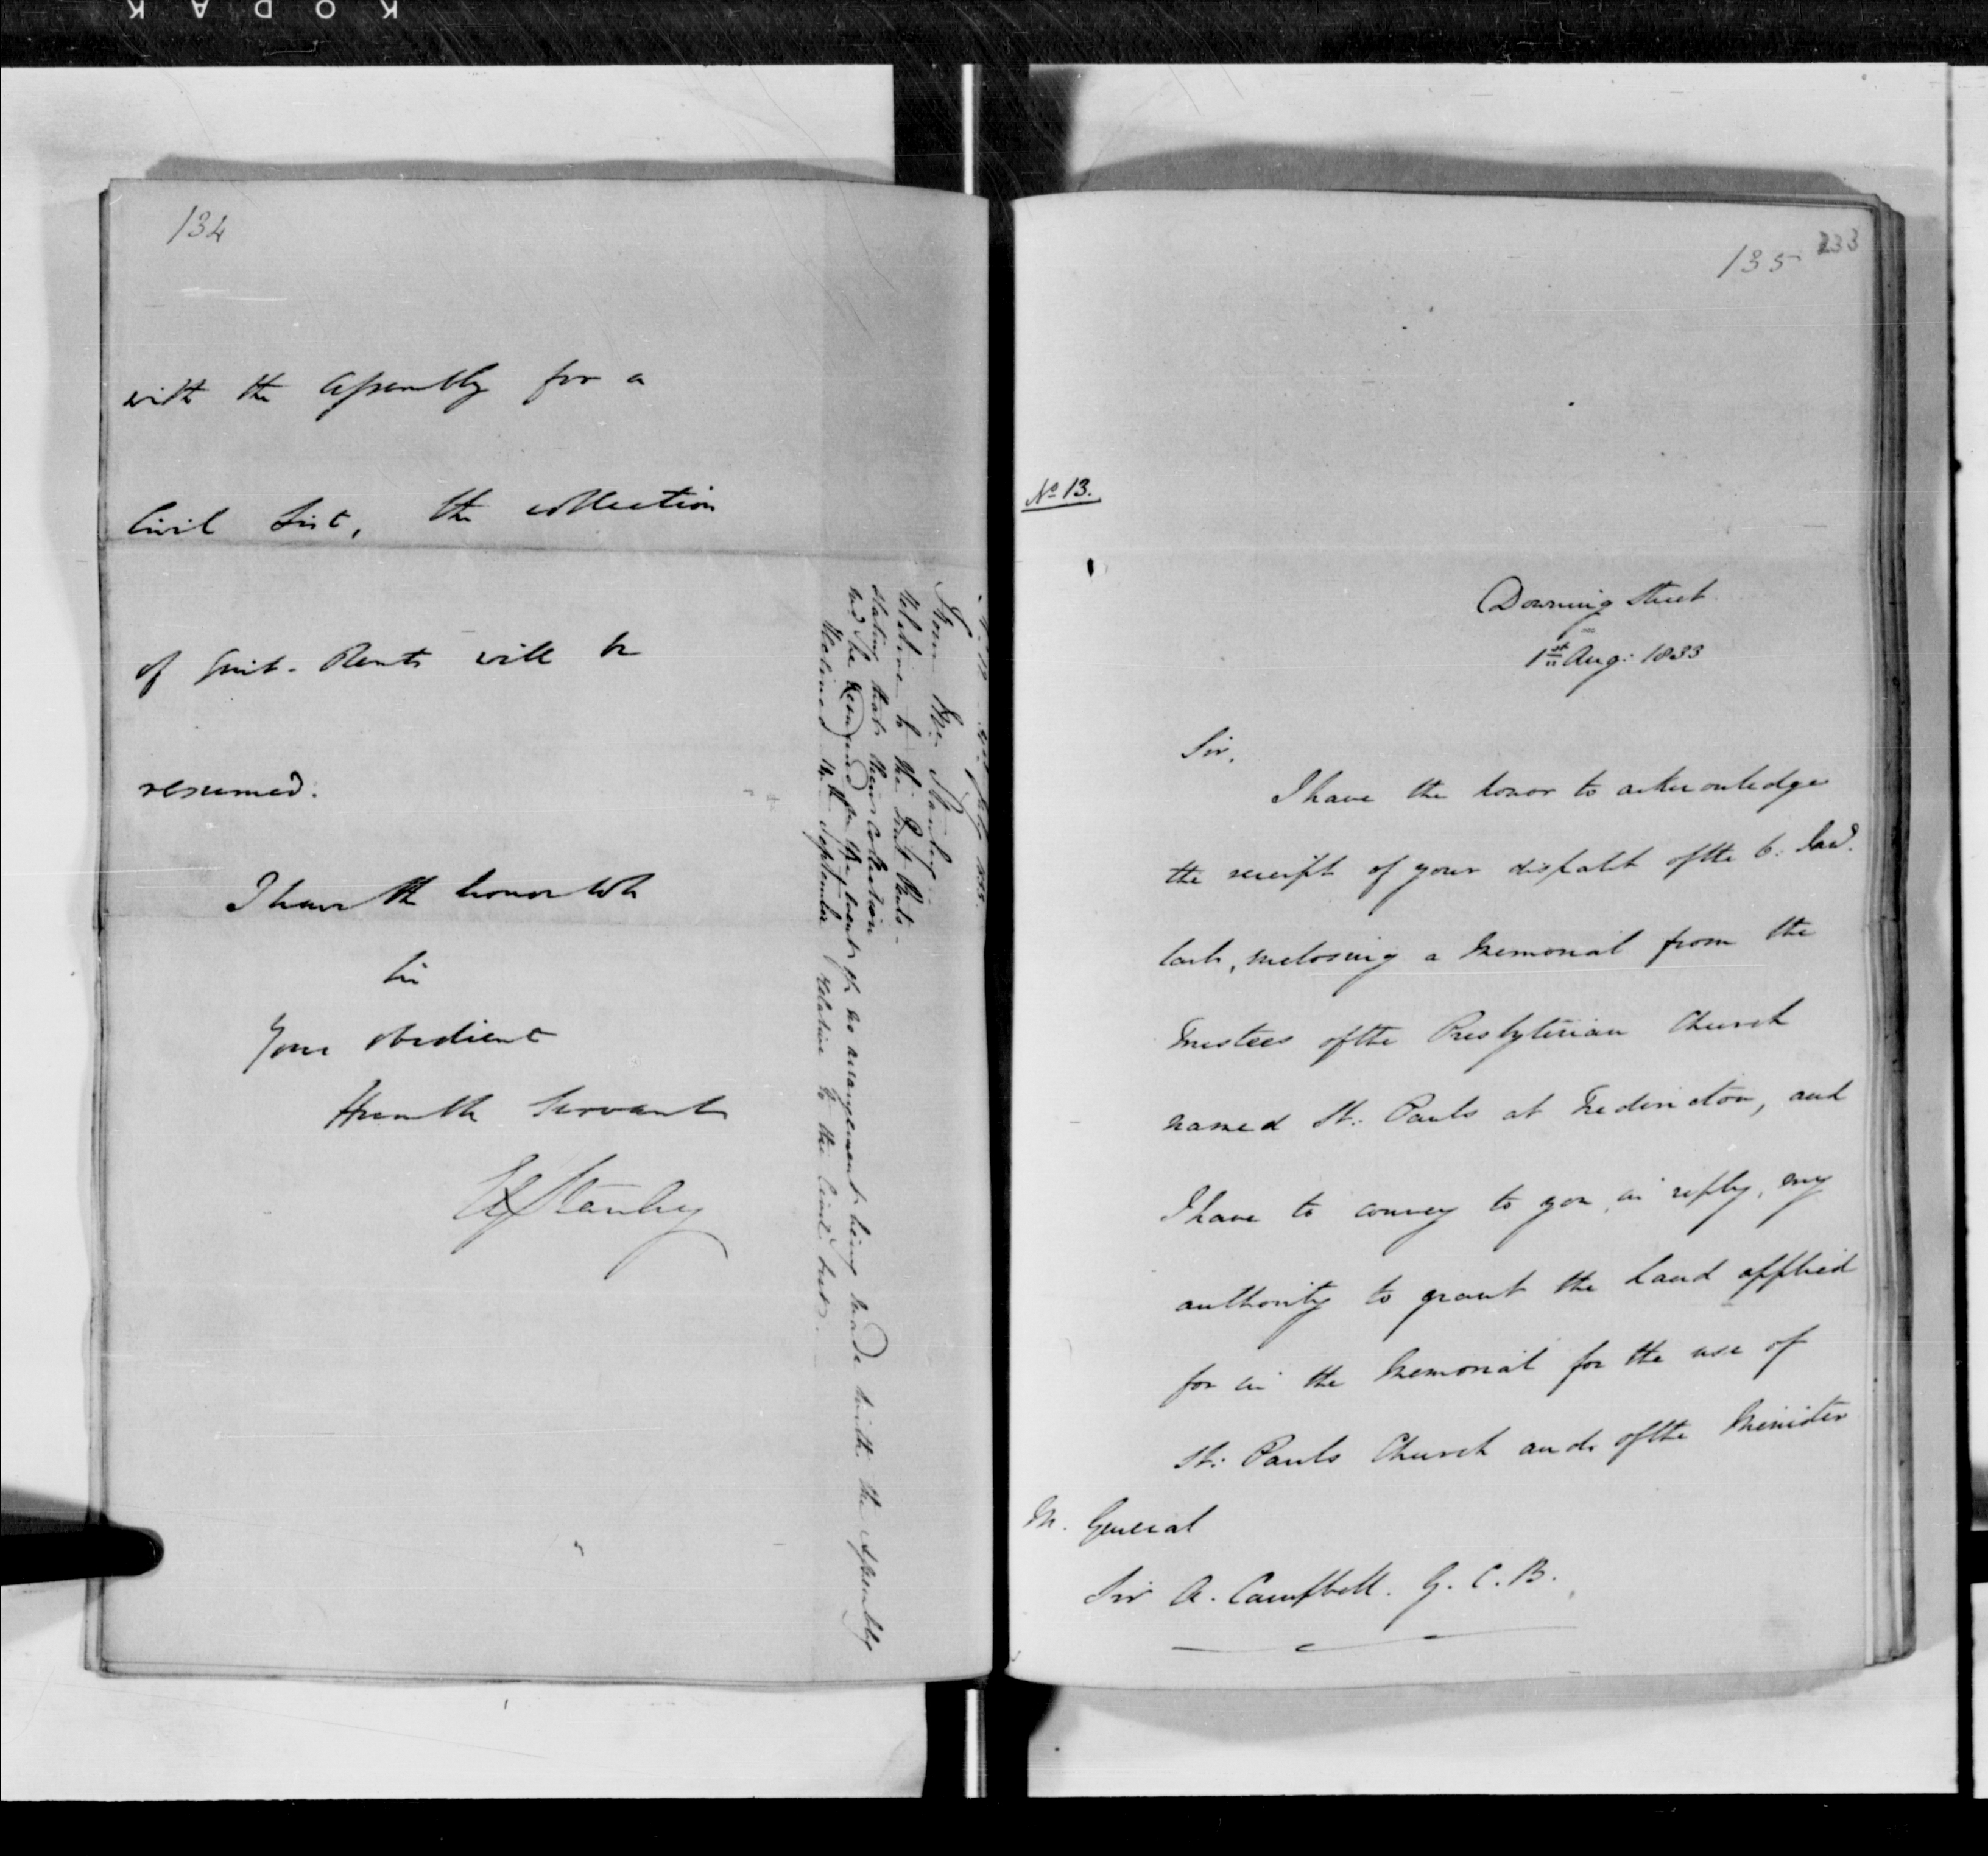 KODAK
134
with the Assembly for a
Civil List, the collection
of Quit-Rents will be
resumed.
I have the honor to be
Sir
Your obedient
Humble Servant
E G Stanley
July 1833.
From Mr. Stanley.
Relative to the Quit Rents-
stating that their collection
will be resumed in the event of no arrangement being made with the Assembly
September relative to the Civil List.
135 233
No 13.
Downing Street.
1st Aug: 1833
Sir,
I have the honor to acknowledge
the receipt of your dispatch of the 6. Jany.
last, inclosing a Memorial from the
Trustees of the Presbyterian Church
named St. Pauls at Fredericton, and
I have to convey to you, in reply, my
authority to grant the Land applied
for in the Memorial for the use of
St. Pauls Church and of the Minister
M. General
Sir A. Campbell. G. C. B.